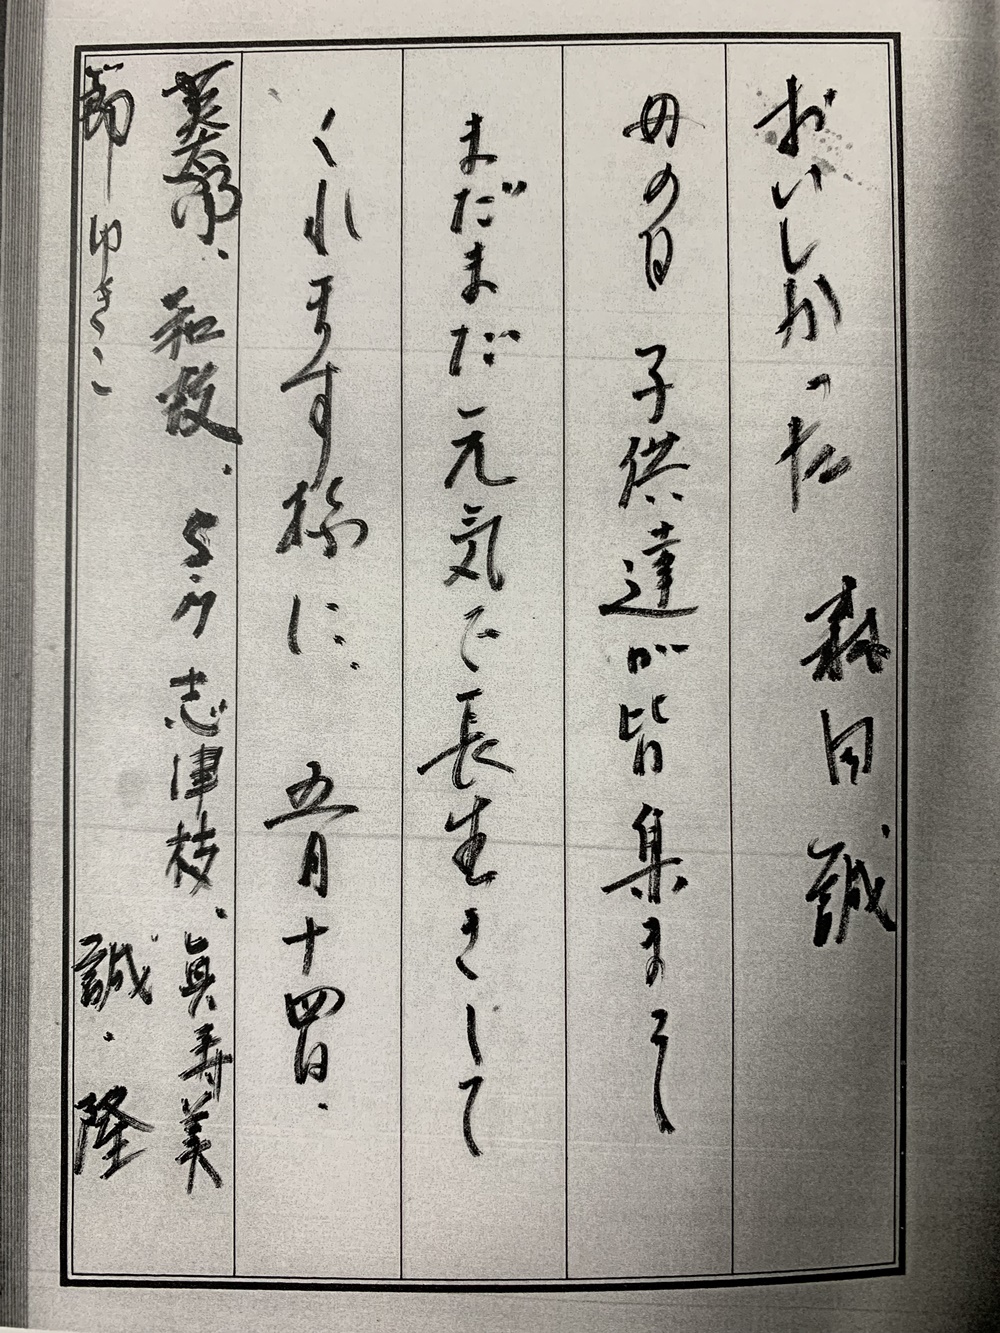 おいしかった 森田 誠
母の日 子供達が皆集まりまして
まだまだ元気で長生きして
くれます様に、 五月十四日、
英太郎、和敏、ちか 志津枝、眞寿美
節 ゆきこ 誠、隆